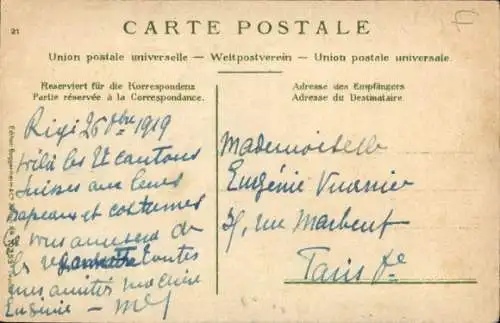 21
CARTE POSTALE
Union postale universelle — Weltpostverein — Union postale universale
Reserviert für die Korrespondenz
Partie réservée à la Correspondance.
Adresse des Empfängers
Adresse du Destinataire.
Rigi 26 1919
les cantons
Suisses leurs
drapeaux et costumes
vous amusera de
les toutes
mes amitiés
Eugénie —
Mademoiselle
Eugénie
rue Marbeuf
Paris